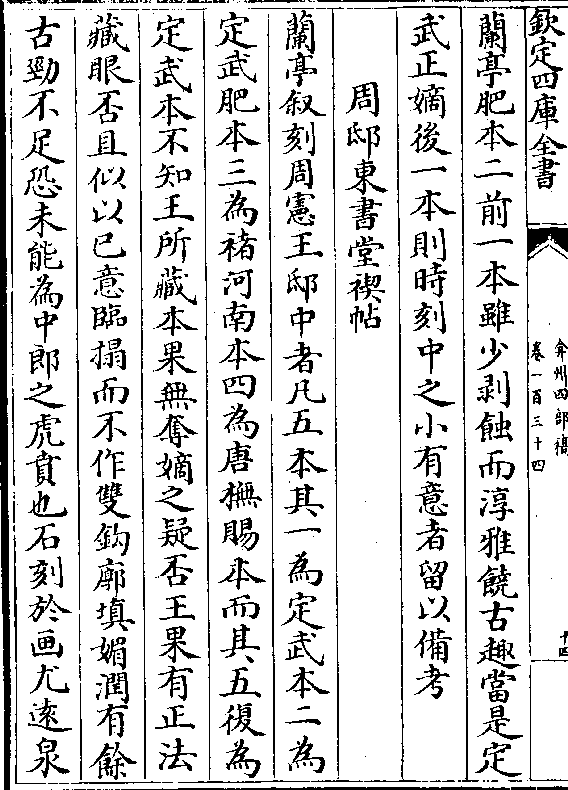 欽定四庫全書
弇州四部稿
卷一百三十四
十四
蘭亭肥本二前一本雖少剥蝕而淳雅饒古趣當是定
武正嫡後一本則時刻中之小有意者留以備考
周邸東書堂禊帖
蘭亭叙刻周憲王邸中者凡五本其一為定武本二為
定武肥本三為褚河南本四為唐橅賜本而其五復為
定武本不知王所藏本果無奪嫡之疑否王果有正法
藏眼否且似以已意臨搨而不作雙鈎廓填媚潤有餘
古勁不足恐未能為中郎之虎賁也石刻於画尤逺泉